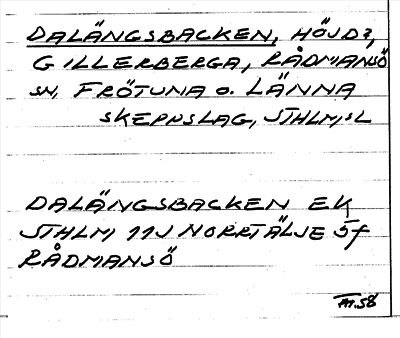 DALÄNGSBACKEN, HÖJD?,
GILLERBERGA, RÅDMANSÖ
SN. FRÖTUNA O. LÄNNA
SKEPPSLAG, STHLM,SL
DALÄNGSBACKEN EK
STHLM 11J NORRTÄLJE 5f
RÅDMANSÖ
58